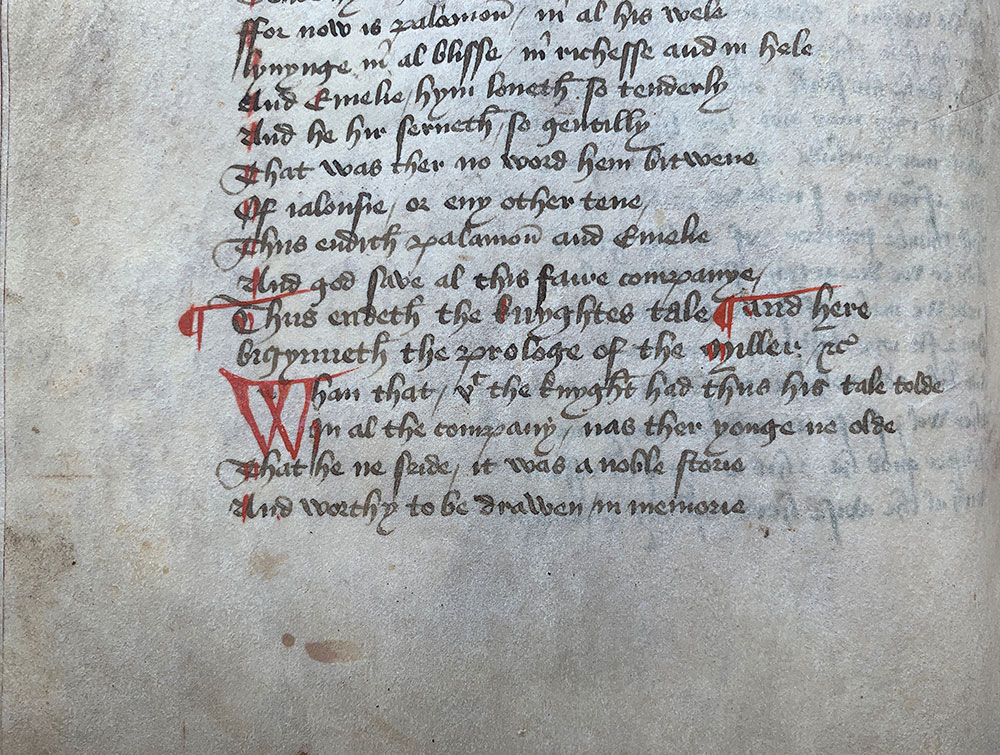 ffor now is palamon̄ / in al his wele
lyuynge in al blisse / in richesse and in hele
And Emelie / hym loueth so tenderly
And he hir serueth / so gentilly
That was ther no word hem bitwene
Of ialousie / or eny other tene /
Thus endith palamon̄ and Emelie
And god saue al this faire companye /
¶ Thus endeth the knyghtes tale ¶ and here
bigynneth the prologe of the Miller / &c
Whan that / the knyght had thus his tale tolde
In al the company / nas ther yonge ne olde
That he ne seide / it was a noble storie
And worthy to be drawen / in memorie